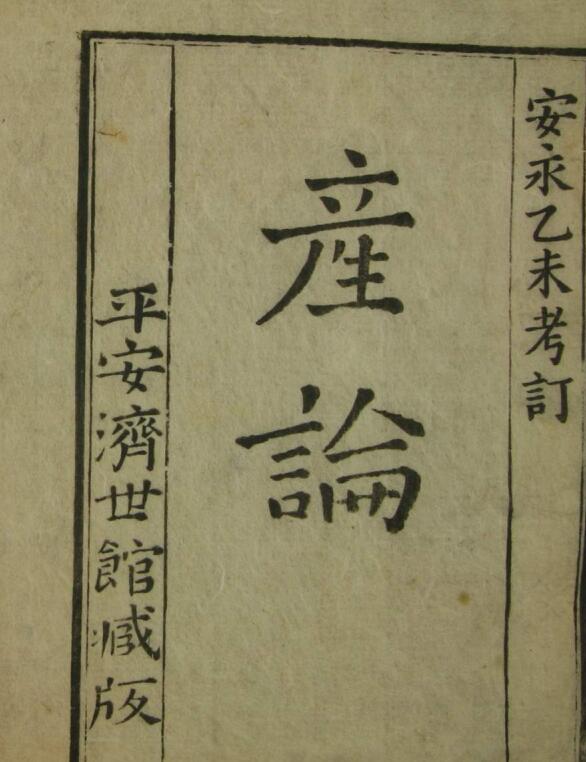 安永乙未考訂
産論
平安濟世館臧版